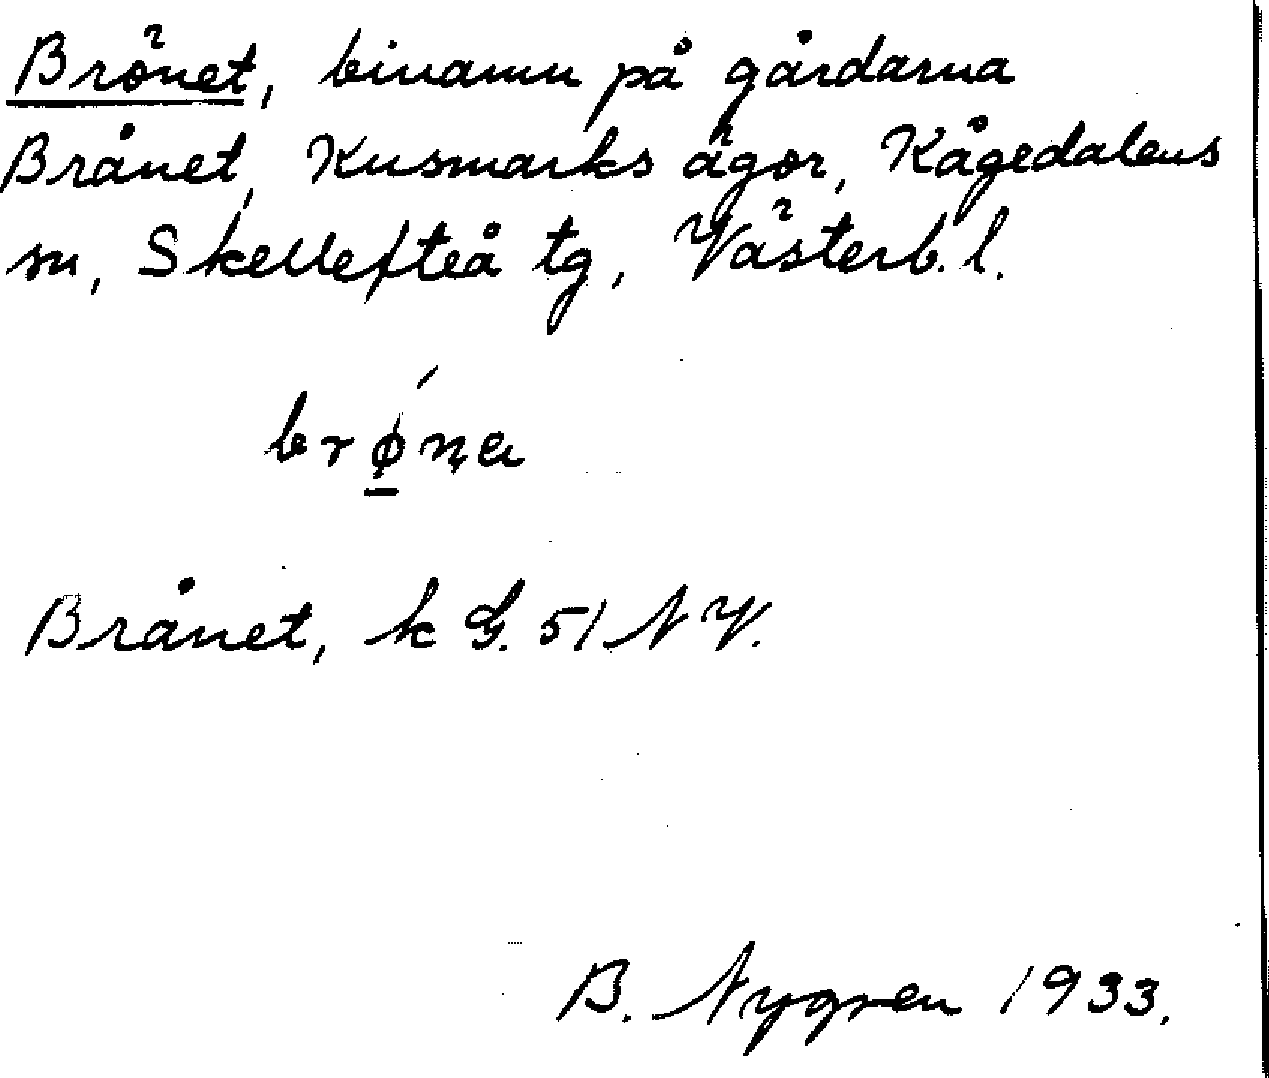 Brönet, binamn på gårdarna
Brånet, Kusmarks ägor, Kågedalens
sn, Skellefteå tg, Västerb. l.
brǿ̱n̥a
Brånet, k G. 51 N V.
B. Nygren 1933.